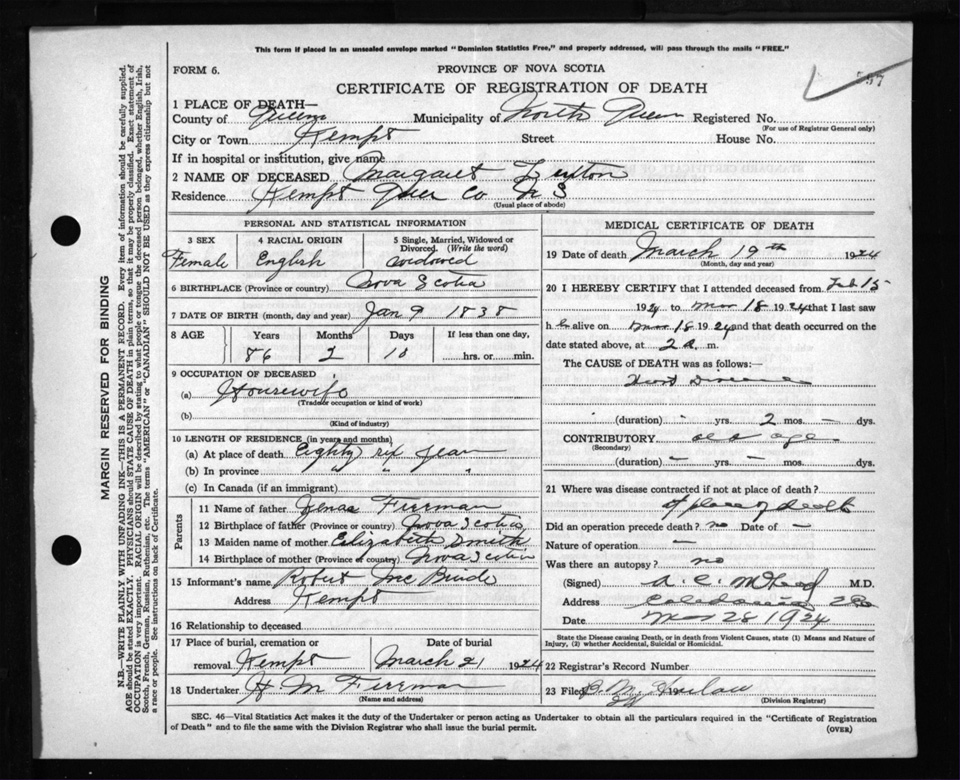 This form if placed in an unsealed envelope marked "Dominion Statistics Free," and properly addressed, will pass through the mails "FREE."
FORM 6.
PROVINCE OF NOVA SCOTIA
57
CERTIFICATE OF REGISTRATION OF DEATH
1 PLACE OF DEATH—
County of Queens Municipality of North Queen Registered No.
(For use of Registrar General only)
City or Town Kempt Street House No.
If in hospital or institution, give name
2 NAME OF DECEASED Margaret
Residence Kempt Queen Co N S
(Usual place of abode)
PERSONAL AND STATISTICAL INFORMATION
3 SEX
Female
4 RACIAL ORIGIN
English
5 Single, Married, Widowed or
Divorced. (Write the word)
widowed
6 BIRTHPLACE (Province or country) Nova Scotia
7 DATE OF BIRTH (month, day and year) Jan 9 1838
8 AGE Years Months Days If less than one day,
86 2 10 hrs. or min.
9 OCCUPATION OF DECEASED
(a) Housewife
(Trade or occupation or kind of work)
(b)
(Kind of industry)
10 LENGTH OF RESIDENCE (in years and months)
(a) At place of death Eighty six years
(b) In province " " "
(c) In Canada (if an immigrant)
Parents
11 Name of father Zenas Freeman
12 Birthplace of father (Province or country) Nova Scotia
13 Maiden name of mother Elizabeth Smith
14 Birthplace of mother (Province or country) Nova Scotia
15 Informant's name Robert Mc Bride
Address Kempt
16 Relationship to deceased
17 Place of burial, cremation or
removal Kempt
Date of burial
March 21 1924
18 Undertaker H M Freeman
(Name and address)
MEDICAL CERTIFICATE OF DEATH
19 Date of death March 19th 1924
(Month, day and year)
20 I HEREBY CERTIFY that I attended deceased from Feb 15
1924 to Mar 18 1924 that I last saw
h er alive on Mar 18 1924 and that death occurred on the
date stated above, at 2 a m.
The CAUSE of DEATH was as follows:
Heart Disease
(duration) - yrs. 2 mos. - dys.
CONTRIBUTORY old age
(Secondary)
(duration) — yrs. — mos. dys.
21 Where was disease contracted if not at place of death?
at place of death
Did an operation precede death? no Date of —
Nature of operation —
Was there an autopsy? no
(Signed) A. C. M.D.
Address Caledonia
Date Mar 28 1924
State the Disease causing Death, or in death from Violent Causes, state (1) Means and Nature of
Injury, (2) whether Accidental, Suicidal or Homicidal.
22 Registrar's Record Number
23 Filed
(Division Registrar)
SEC. 46—Vital Statistics Act makes it the duty of the Undertaker or person acting as Undertaker to obtain all the particulars required in the "Certificate of Registration
of Death" and to file the same with the Division Registrar who shall issue the burial permit.
(OVER)
MARGIN RESERVED FOR BINDING
N.B.—WRITE PLAINLY WITH UNFADING INK—THIS IS A PERMANENT RECORD. Every item of information should be carefully supplied.
AGE should be stated EXACTLY. PHYSICIANS should STATE CAUSE OF DEATH in plain terms, so that it may be properly classified. Exact statement of
OCCUPATION is very important. RACIAL ORIGIN will be described by stating to what people or tongue the deceased person belonged, whether English, Irish,
Scotch, French, German, Russian, Ruthenian, etc. The terms "AMERICAN" or "CANADIAN" SHOULD NOT BE USED as they express citizenship but not
a race or people. See instructions on back of Certificate.